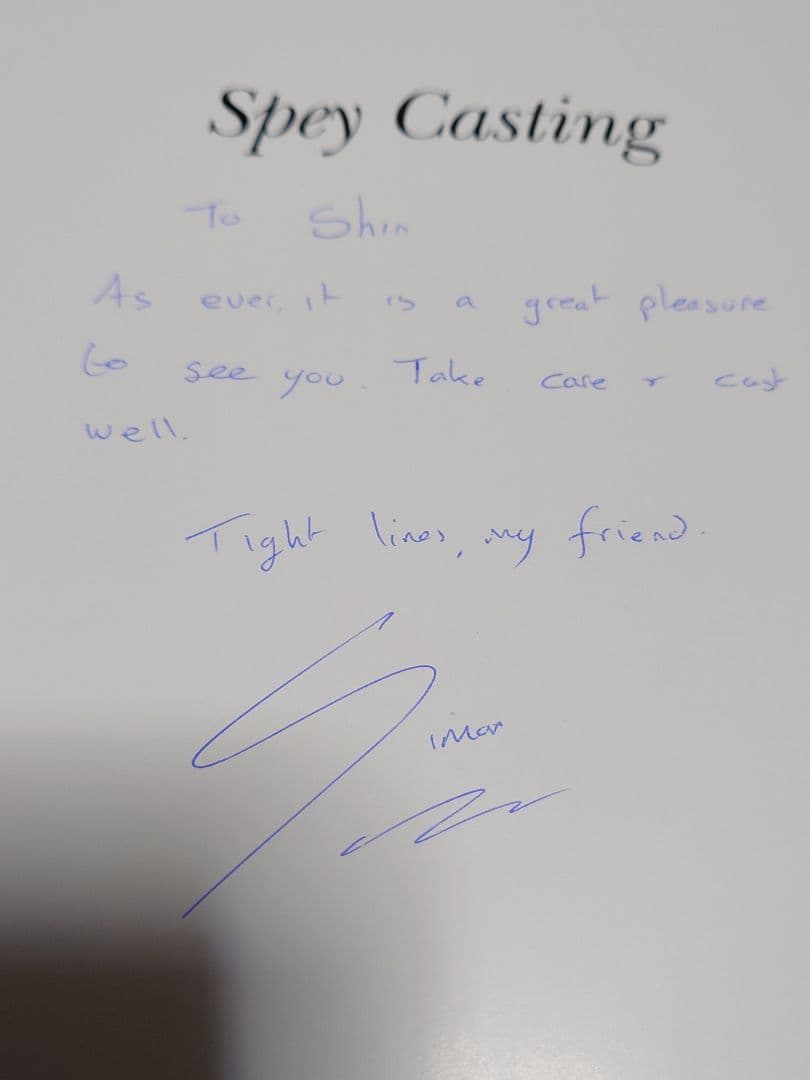 Spey Casting
To Shin
As ever, it is a great pleasure
to see you. Take care & cast
well.
Tight lines, my friend.
Simon